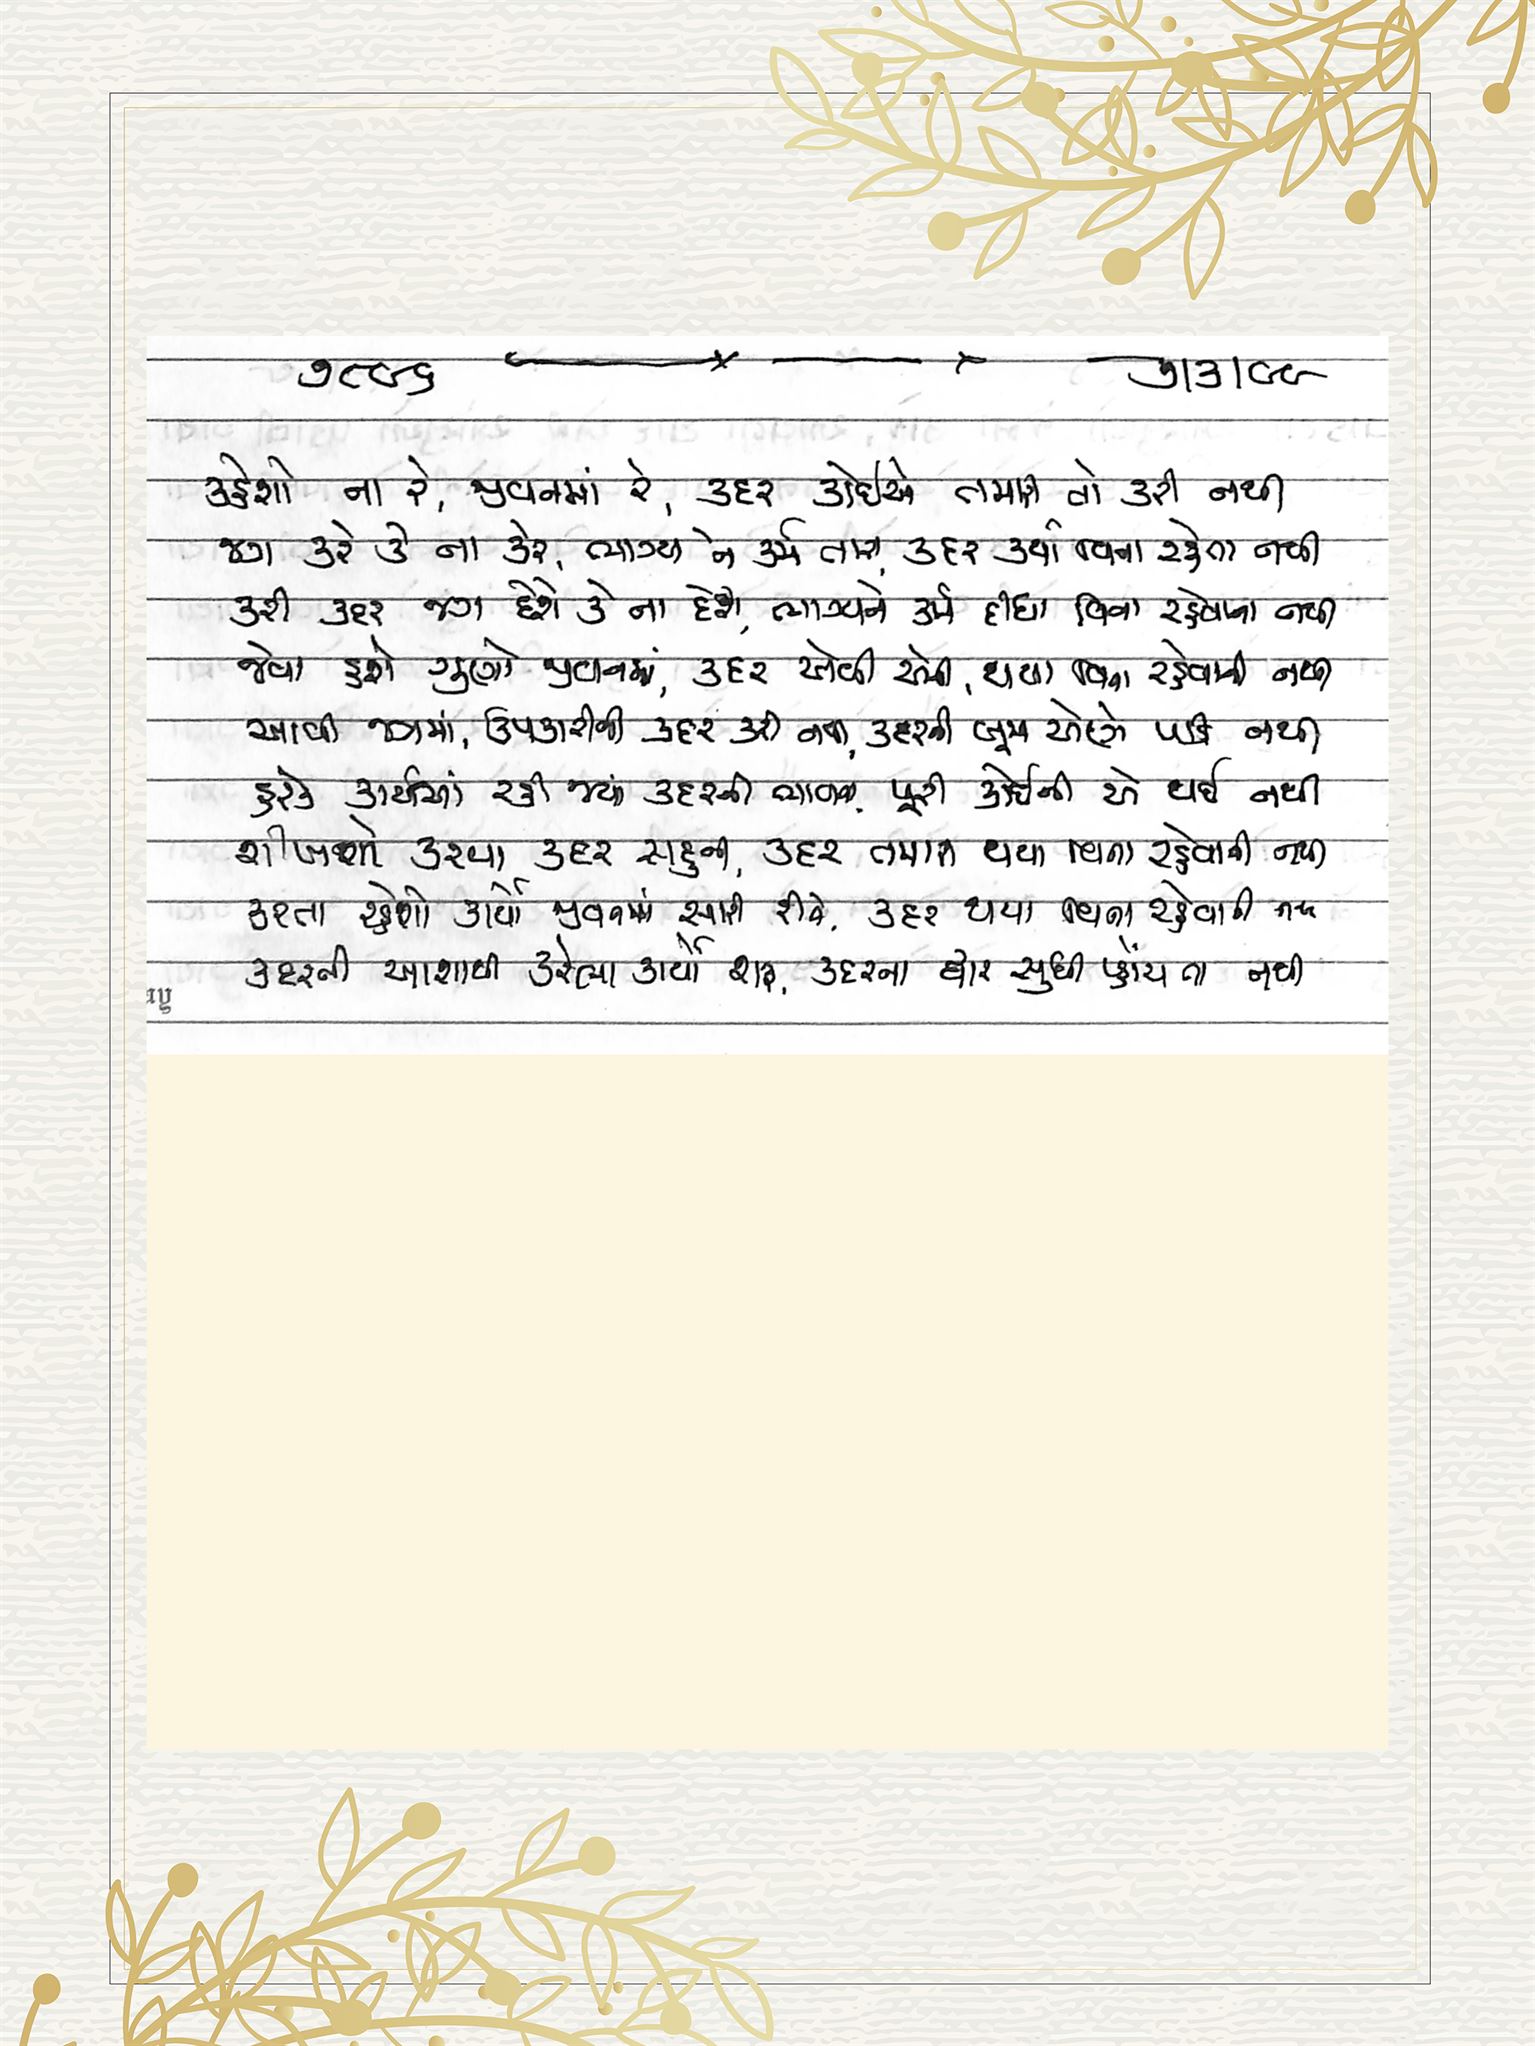 ૭૮૯૬ ૭।૩।૯૯
કહેશો ના રે, જીવનમાં રે, કદર કોઈએ તમારી તો કરી નથી
જગ કરે કે ના કરે, ભાગ્ય ને કર્મ તારા, કદર કર્યા વિના રહેતા નથી
કરી કદર જગ દેશે કે ના દેશે, ભાગ્યને કર્મ દીધા વિના રહેવાના નથી
જેવા હશે ગુણો જીવનમાં, કદર એની એવી, થયા વિના રહેવાની નથી
આવી જગમાં, ઉપકારીની કદર કરી નથી, કદરની બૂમ એણે પાડી નથી
હરેક કાર્યમાં રહી જ્યાં કદરની ભાવના, પૂરી કોઈની એ થઈ નથી
શીખજો કરવા કદર સહુની, કદર તમારી થયા વિના રહેવાની નથી
કરતા રહેશો કાર્યો જીવનમાં સારી રીતે, કદર થયા વિના રહેવાની નથી
કદરની આશાથી કરેલા કાર્યો શરૂ, કદરના દ્વાર સુધી પહોંચતા નથી